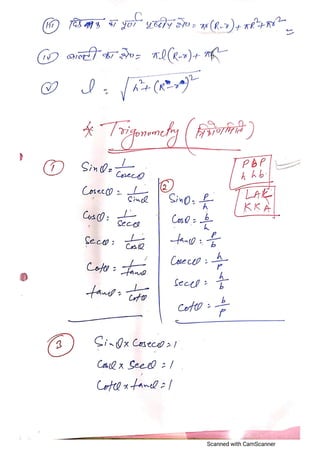 (iii) छिन्नक का पूर्ण पृष्ठीय क्षेत्र० = πl(R-r)+πR²+πr²
(iv) बाल्टी का क्षे० = πl(R-r)+πr²
(v) l = √h²+(R-r)²
* Trigonometry (त्रिकोणमिति)
PBP
hhb
LAR
KKA
(1)
Sinθ = 1/Cosecθ
Cosecθ = 1/Sinθ
Cosθ = 1/Secθ
Secθ = 1/Cosθ
Cotθ = 1/tanθ
tanθ = 1/Cotθ
(2)
Sinθ = P/h
Cosθ = b/h
tanθ = P/b
Cosecθ = h/P
Secθ = h/b
Cotθ = b/P
(3)
Sinθ x Cosecθ = 1
Cosθ x Secθ = 1
Cotθ x tanθ = 1
Scanned with CamScanner